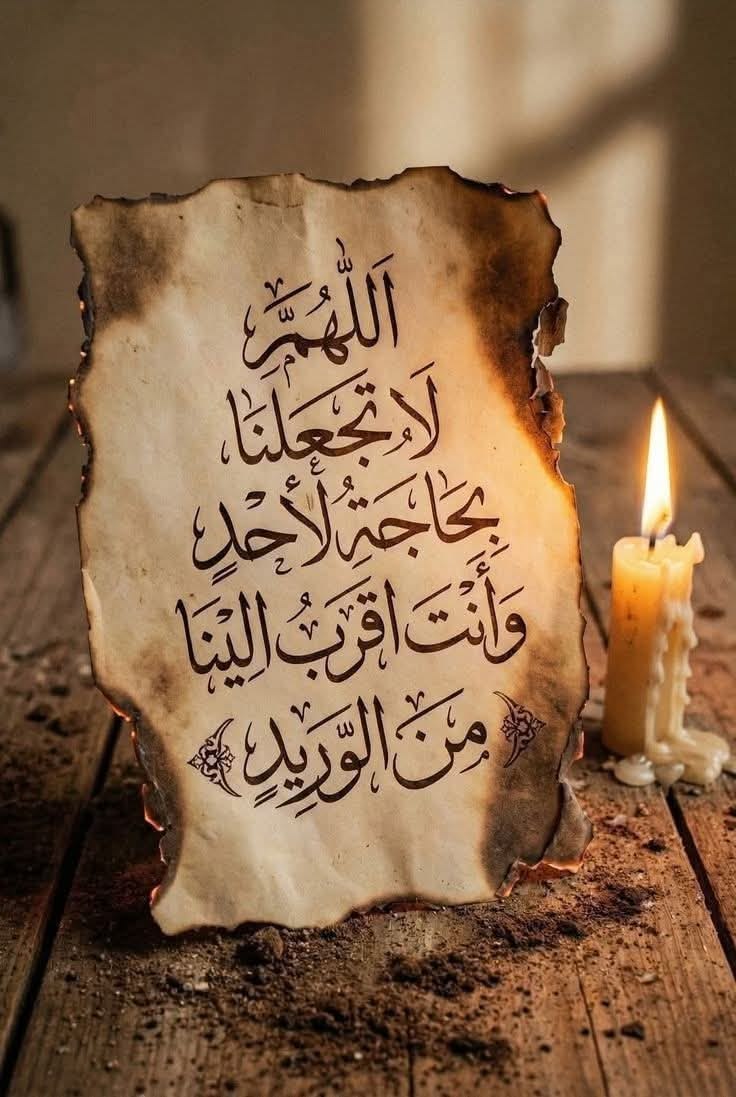 اَللّٰهُمَّ
لَا تَجعَلنَا
بِحَاجَةِ لأَحَدٍ
وَأَنْتَ اقرَبُ اِلَيْنَا
مِنَ الوَّرِيدِ